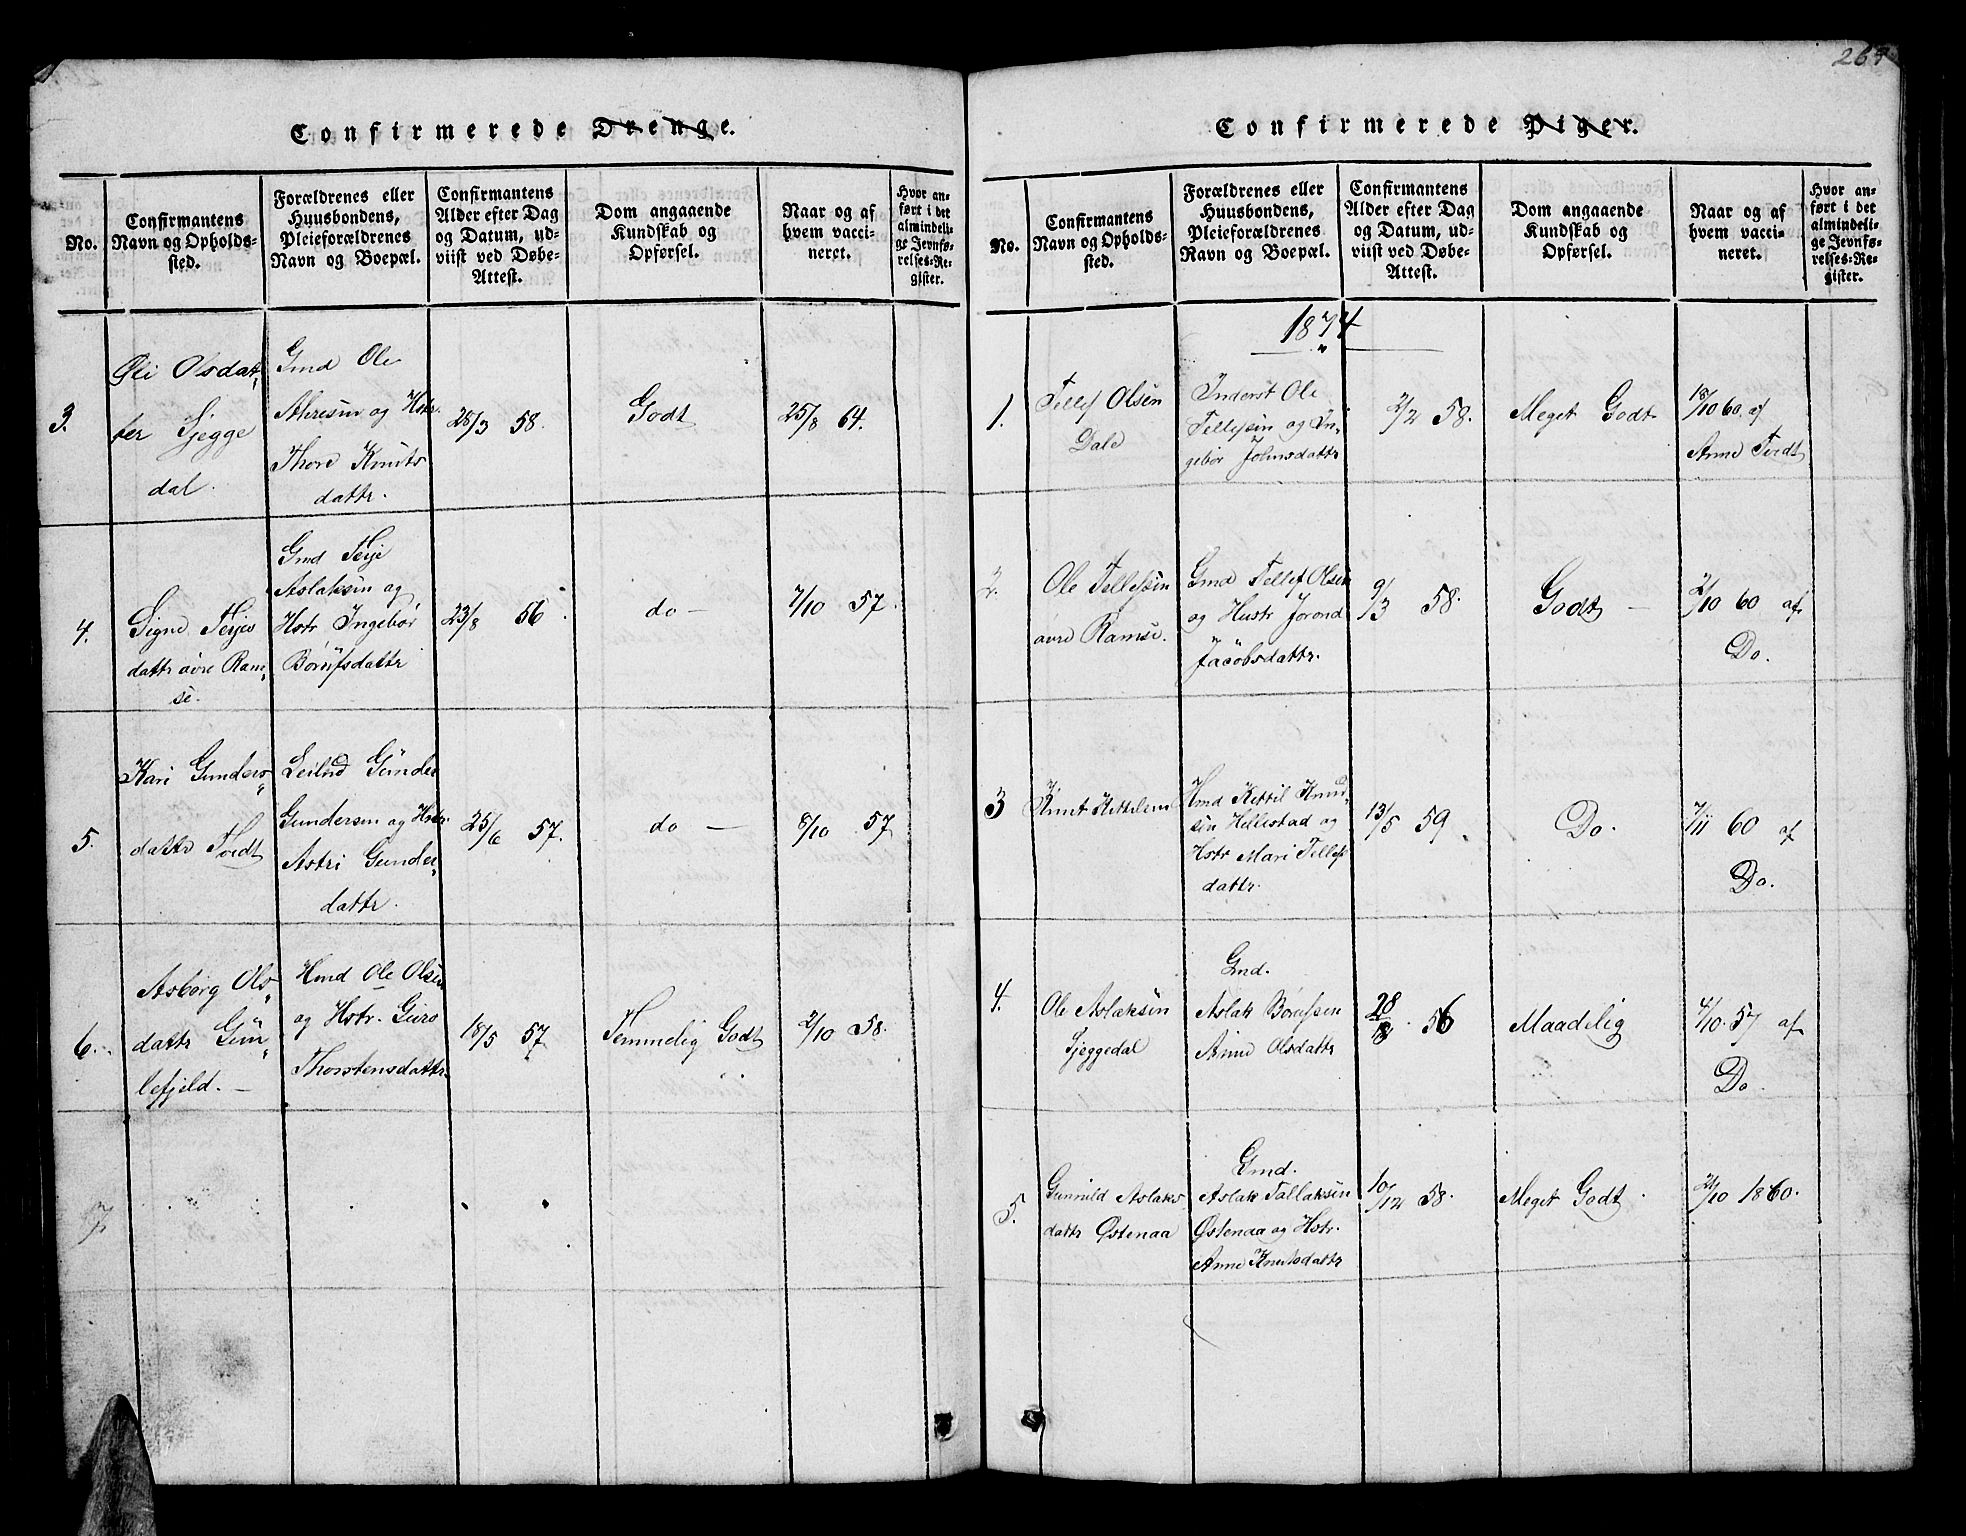 269
Confirmerede Drenge.
No.
Confirmantens
Navn og Opholds-
sted.
Forældrenes eller
Huusbondens,
Pleieforældrenes
Navn og Boepæl.
Confirmantens
Alder efter Dag
og Datum, ud-
viist ved Døbe-
Attest.
Dom angaaende
Kundskab og
Opførsel.
Naar og af
hvem vacci-
neret.
Hvor an-
ført i det
almindeli-
ge Jevnfø-
relses-Re-
gister.
3.
Øli Olsdat-
ter Tjegge
dal.
Gmd Ole
Akresen og Hstr.
Thore Knuts
dattr.
28/3 58.
Godt
25/8 64.
4.
Signe Terjes
dattr øvre Ram-
se.
Gmd Terje
Aslaksen og
Hstr Ingebør
Børufsdattr
23/8 56.
do —
7/10 57.
5.
Kari Gunders-
dattr Tvedt
Leilnd Gunder
Gundersen og Hstr.
Astri Gunder-
dattr.
25/6 57.
do —
8/10 57
6.
Asborg Ols-
dattr Gun-
lefjeld. —
Hmd Ole Olsen
og Hstr. Guro
Thorstensdattr.
18/5 57
Temmelig Godt
2/10 58.
7.
Confirmerede Piger.
No.
Confirmantens
Navn og Opholds-
sted.
Forældrenes eller
Huusbondens,
Pleieforældrenes
Navn og Boepæl.
Confirmantens
Alder efter Dag
og Datum, ud-
viist ved Døbe-
Attest.
Dom angaaende
Kundskab og
Opførsel.
Naar og af
hvem vacci-
neret.
Hvor an-
ført i det
almindeli-
ge Jevnfø-
relses-Re-
gister.
1874
1.
Tellef Olsen
Dale
Inderst Ole
Tellefsen og In-
gebør Johnsdattr
2/2 58.
Meget Godt
18/10 60. af
Anne Tvedt
2.
Ole Tellefsen
øvre Ramse.
Gmd Tellef Olsen
og Hustr Jorond
Jacobsdattr.
9/3 58.
Godt —
2/10 60 af
Do.
3
Knut Kittelsen
Hmd Kettil Knud-
sen Hillestad og
Hstr Mari Tellefs
dattr.
13/5 59.
Do.
7/11 60 af
Do.
4.
Ole Aslaksen
Tjeggedal
Gmd.
Aslak Børufsen
Anne Olsdattr
28/ 56
Maadelig
4/10. 57 af
Do.
5.
Gunnild Aslaks
dattr Østenaa
Gmd.
Aslak Tallaksen
Østenaa og Hstr.
Anne Knutsdattr
10/12 58.
Meget Godt.
21/10 1860.